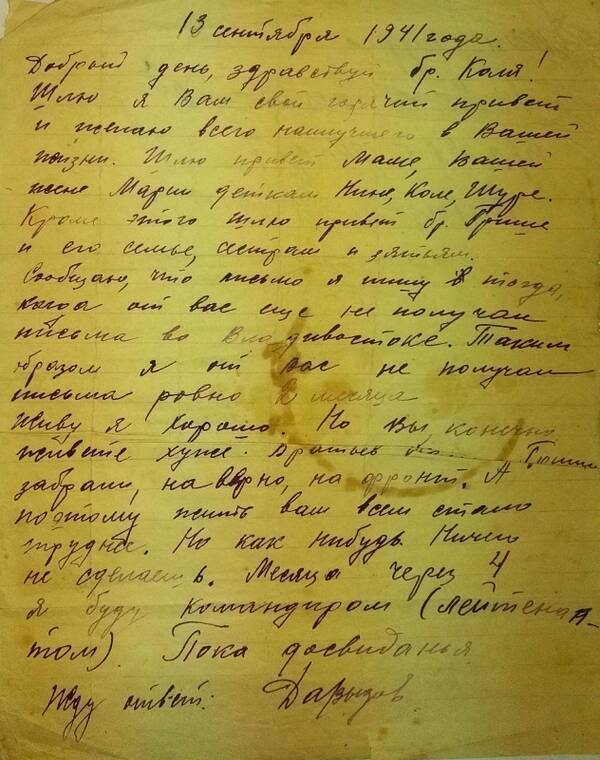 13 сентября 1941 года.
Доброид день, здравствуй бр. Коля!
Шлю я Вам свой горячий привет
и желаю всего наилучшего в Вашей
жизни. Шлю привет Маме, Вашей
жене Марии деткам Нине, Коле, Шуре.
Кроме этого шлю привет бр. Грише
и его семье, сестрам и зятьям.
Сообщаю, что письмо я пишу тогда,
когда от вас еще не получал
письма во Владивостоке. Таким
образом я от вас не получал
письма ровно 2 месяца
Живу я хорошо. Но Вы, конечно
живете хуже. Братьев Гриши
забрали, наверно, на фронт. А
поэтому жить вам всем стало
труднее. Но как нибудь. Ничего
не сделаешь. Месяца через 4
я буду командиром (лейтена-
том). Пока досвиданья.
Жду ответ. Давыдов